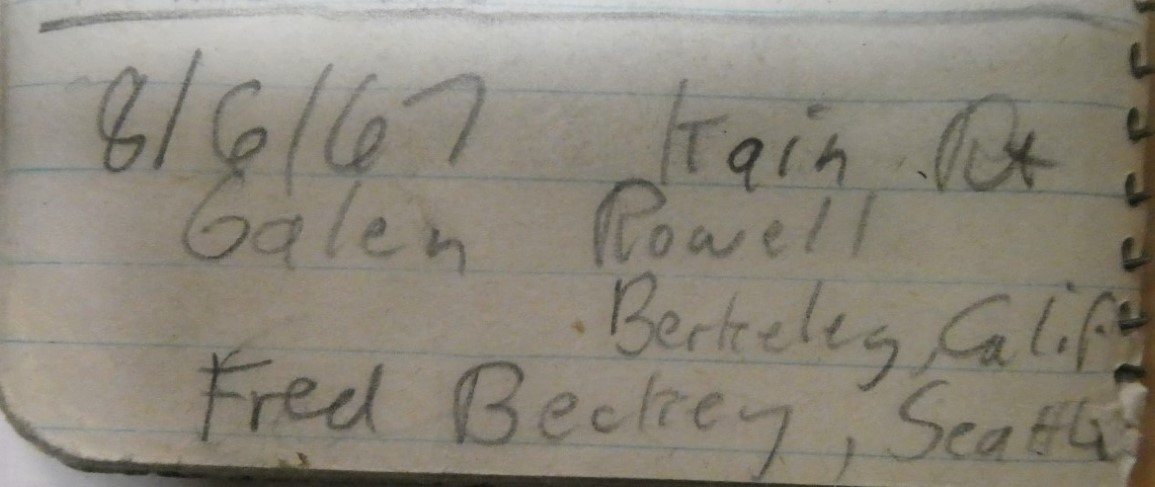 8/6/67 Kain Rt
Galen Rowell
Berkeley, Calif
Fred Beckey, Seattle